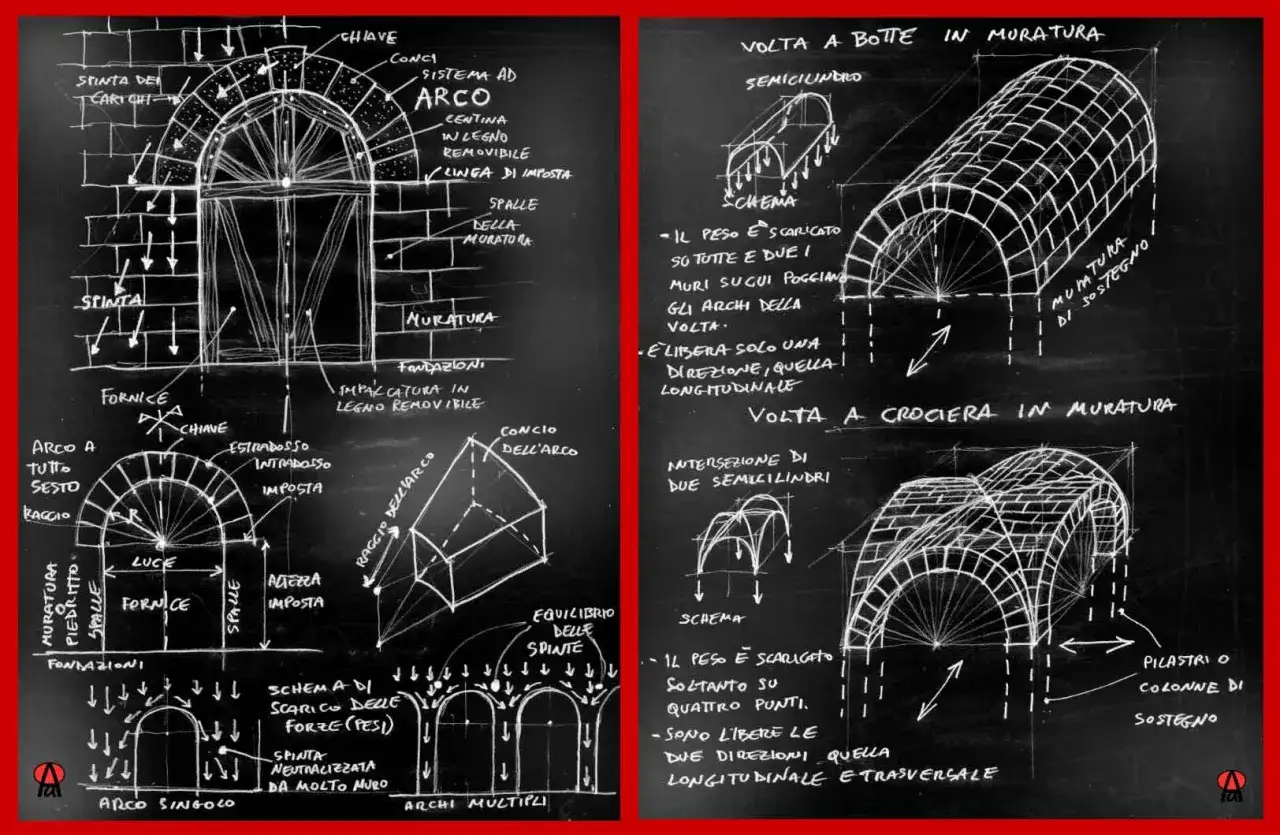 CHIAVE
CONCI
SISTEMA AD
ARCO
SPINTA DEI
CARICHI
CENTINA
IN LEGNO
REMOVIBILE
LINEA DI IMPOSTA
SPALLE
DELLA
MURATURA
SPINTA
MURATURA
FONDAZIONI
FORNICE
IMPALCATURA IN
LEGNO REMOVIBILE
CHIAVE
ARCO A
TUTTO
SESTO
ESTRADOSSO
INTRADOSSO
IMPOSTA
RAGGIO
R
LUCE
FORNICE
MURATURA
O
PIEDRITTO
SPALLE
SPALLE
ALTEZZA
IMPOSTA
FONDAZIONI
CONCIO
DELL'ARCO
RAGGIO DELL'ARCO
EQUILIBRIO
DELLE
SPINTE
SCHEMA DI
SCARICO DELLE
FORZE (PESI)
SPINTA
NEUTRALIZZATA
DA MOLTO MURO
ARCO SINGOLO
ARCHI MULTIPLI
VOLTA A BOTTE IN MURATURA
SEMICILINDRO
SCHEMA
- IL PESO È SCARICATO
SU TUTTE E DUE I
MURI SU CUI POGGIANO
GLI ARCHI DELLA
VOLTA.
- È LIBERA SOLO UNA
DIREZIONE, QUELLA
LONGITUDINALE
MURATURA
DI SOSTEGNO
VOLTA A CROCIERA IN MURATURA
INTERSEZIONE DI
DUE SEMICILINDRI
SCHEMA
- IL PESO È SCARICATO
SOLTANTO SU
QUATTRO PUNTI.
- SONO LIBERE LE
DUE DIREZIONI QUELLA
LONGITUDINALE E TRASVERSALE
PILASTRI O
COLONNE DI
SOSTEGNO